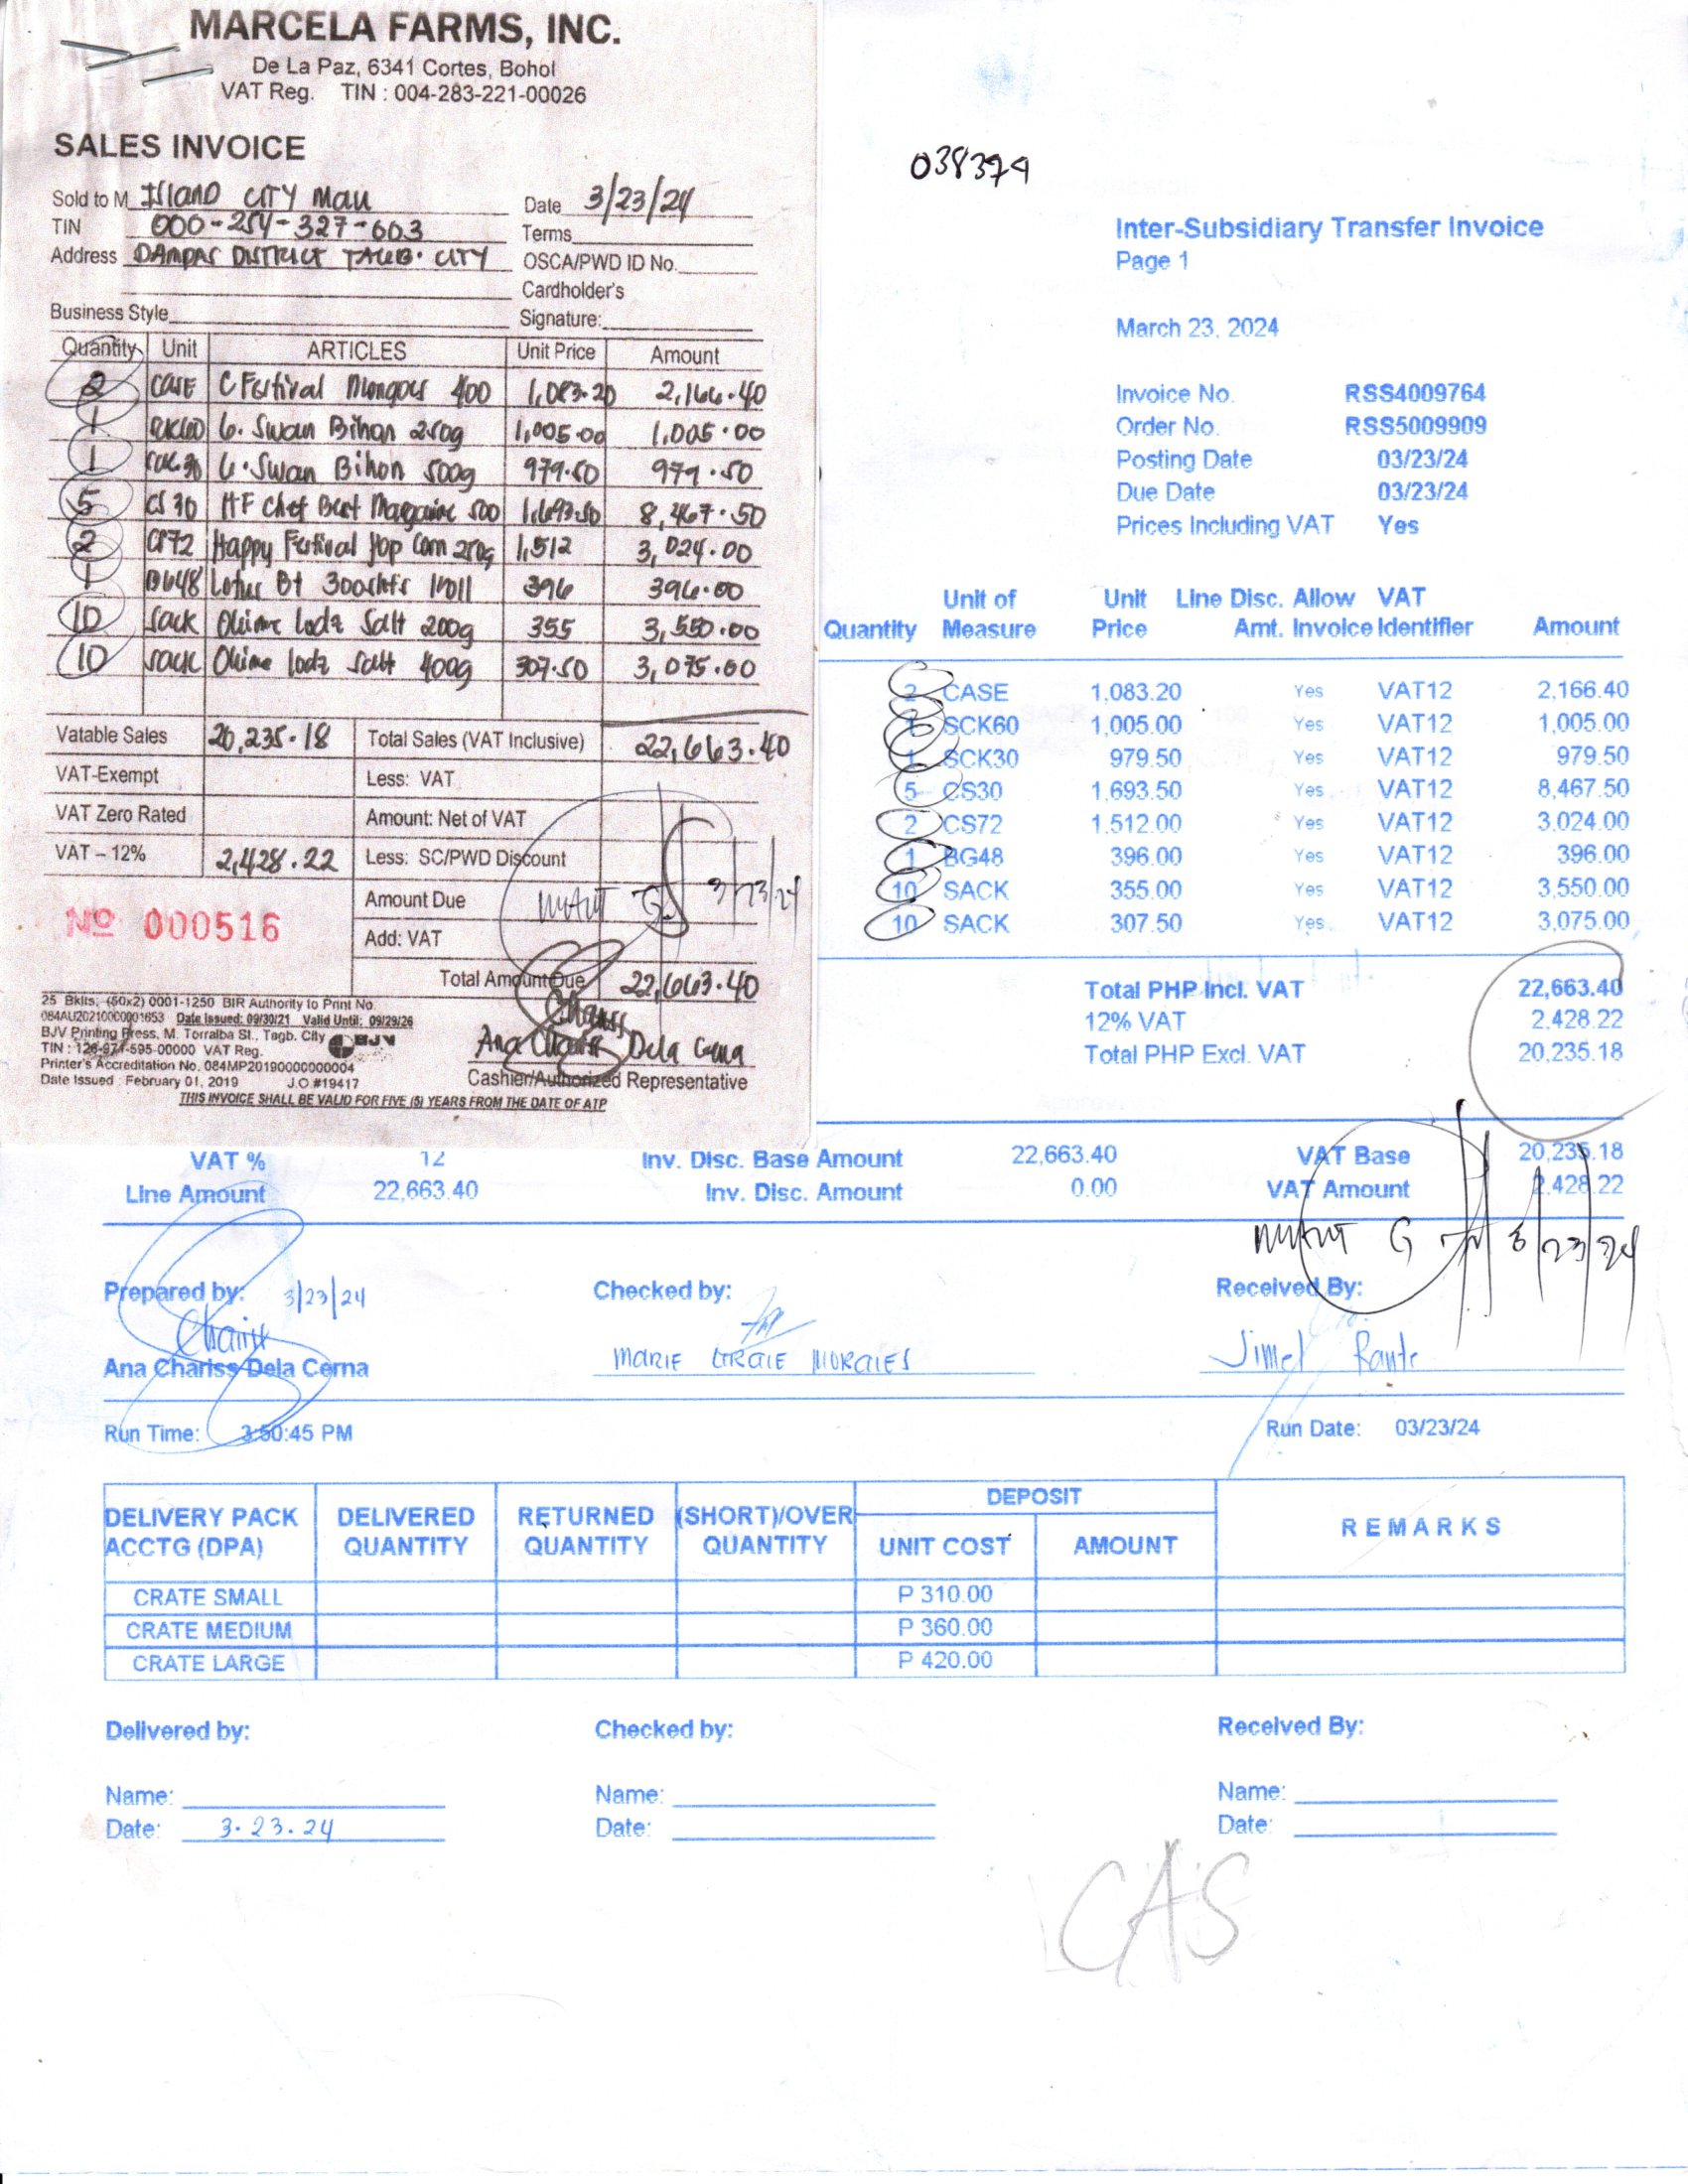 MARCELA FARMS, INC.
De La Paz, 6341 Cortes, Bohol
VAT Reg. TIN : 004-283-221-00026
SALES INVOICE
Sold to M Island City Mall
Date 3/23/24
TIN 000-254-327-603
Terms
Address Dampas District Tagb. City
OSCA/PWD ID No.
Cardholder's
Signature:
Business Style
Quantity Unit ARTICLES Unit Price Amount
2 case C Festival Mongos 400 1,083.20 2,166.40
1 G. Swan Bihon 250g 1,005.00 1,005.00
1 G. Swan Bihon 500g 979.50 979.50
5 CS30 HF Chef Best Margarine 500 1,693.50 8,467.50
2 CS72 Happy Festival Pop Corn 250g 1,512 3,024.00
1 BG48 Lotus Bt 300shts 1roll 396 396.00
10 sack Salt 200g 355 3,550.00
10 sack Salt 400g 307.50 3,075.00
Vatable Sales 20,235.18 Total Sales (VAT Inclusive) 22,663.40
VAT-Exempt Less: VAT
VAT Zero Rated Amount: Net of VAT
VAT – 12% 2,428.22 Less: SC/PWD Discount
Amount Due
3/23/24
Nº 000516
Add: VAT
Total Amount Due 22,663.40
25 Bklts. (50x2) 0001-1250 BIR Authority to Print No.
084AU20210000001653 Date Issued: 09/30/21 Valid Until: 09/29/26
BJV Printing Press, M. Torralba St., Tagb. City
BJV
TIN : 126-971-595-00000 VAT Reg.
Printer's Accreditation No. 084MP20190000000004
Date Issued : February 01, 2019 J.O.#19417
Ana Chariss Dela Cerna
Cashier/Authorized Representative
THIS INVOICE SHALL BE VALID FOR FIVE (5) YEARS FROM THE DATE OF ATP
038379
Inter-Subsidiary Transfer Invoice
Page 1
March 23, 2024
Invoice No. RSS4009764
Order No. RSS5009909
Posting Date 03/23/24
Due Date 03/23/24
Prices Including VAT Yes
Quantity Unit of Measure Unit Price Line Disc. Amt. Allow Invoice VAT Identifier Amount
2 CASE 1,083.20 Yes VAT12 2,166.40
1 SCK60 1,005.00 Yes VAT12 1,005.00
1 SCK30 979.50 Yes VAT12 979.50
5 CS30 1,693.50 Yes VAT12 8,467.50
2 CS72 1.512.00 Yes VAT12 3.024.00
1 BG48 396.00 Yes VAT12 396.00
10 SACK 355.00 Yes VAT12 3,550.00
10 SACK 307.50 Yes VAT12 3,075.00
Total PHP Incl. VAT 22,663.40
12% VAT 2.428.22
Total PHP Excl. VAT 20,235.18
VAT % 12 Inv. Disc. Base Amount 22,663.40 VAT Base 20,235.18
Line Amount 22,663.40 Inv. Disc. Amount 0.00 VAT Amount 2.428.22
3/23/24
Prepared by: 3/23/24 Checked by: Received By:
Chariss
Ana Chariss Dela Cerna
MARIE GRACE MORALES
Jimel Rante
Run Time: 3:50:45 PM Run Date: 03/23/24
DELIVERY PACK ACCTG (DPA) DELIVERED QUANTITY RETURNED QUANTITY (SHORT)/OVER QUANTITY DEPOSIT UNIT COST AMOUNT REMARKS
CRATE SMALL P 310.00
CRATE MEDIUM P 360.00
CRATE LARGE P 420.00
Delivered by: Checked by: Received By:
Name: Name: Name:
Date: 3.23.24 Date: Date:
CAS